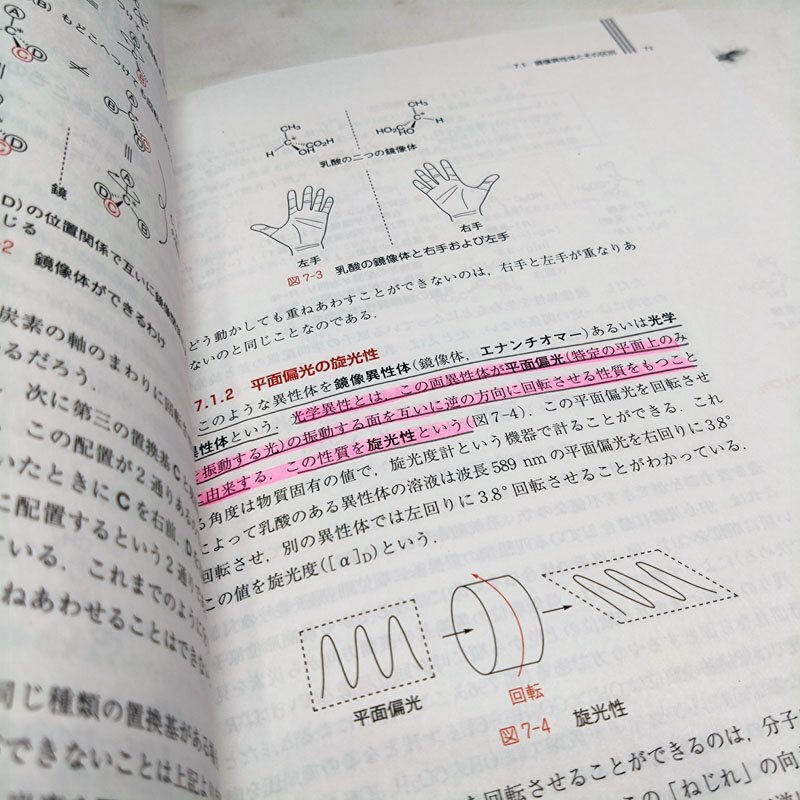 (B) もどこへつけ
A
D
C
B
D
C
A
B
C
D
鏡
D)の位置関係で互いに鏡像
じる
-2 鏡像体ができるわけ
炭素の軸のまわりに回転
るだろう.
, 次に第三の置換基C
, この配置が2通りある
いたときにCを右前, D
に配置するという2通り
いる. これまでのように
ねあわせることはできない
同じ種類の置換基がある
できないことは上記より
7.1 鏡像異性体とその区別 73
CH3
H C* CO2H
OH
CH3
HO2C C* H
HO
乳酸の二つの鏡像体
左手
右手
図7-3 乳酸の鏡像体と右手および左手
どう動かしても重ねあわすことができないのは, 右手と左手が重なりあ
ないのと同じことなのである.
7.1.2 平面偏光の旋光性
このような異性体を鏡像異性体(鏡像体, エナンチオマー)あるいは光学
異性体という. 光学異性とは, この両異性体が平面偏光(特定の平面上のみ
を振動する光)の振動する面を互いに逆の方向に回転させる性質をもつこと
に由来する. この性質を旋光性という(図7-4). この平面偏光を回転させ
る角度は物質固有の値で, 旋光度計という機器で計ることができる. これ
によって乳酸のある異性体の溶液は波長589 nmの平面偏光を右回りに3.8°
回転させ, 別の異性体では左回りに3.8°回転させることがわかっている.
この値を旋光度([α]D)という.
平面偏光
回転
図7-4 旋光性
を回転させることができるのは, 分子
この「ねじれ」の向